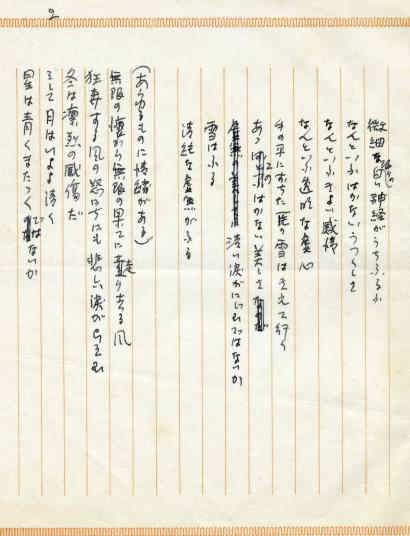 2
微細な白い神経がうちふるふ
なんといふはかないうつくしさ
なんといふきよい感情
なんといふ透明な虚心
手の平におちた一片の雪はきえて行く
あゝ この はかない美しさ
清い涙がにじむではないか
雪はふる
清純な虚無がふる
(あらゆるものに情緒がある)
無限の涯から無限の果てに走り去る風
狂奔する風の怒号にも悲しい涙がひそむ
冬は凛烈の感傷だ
そして月はいよよ清く
星は青くまたゝくではないか